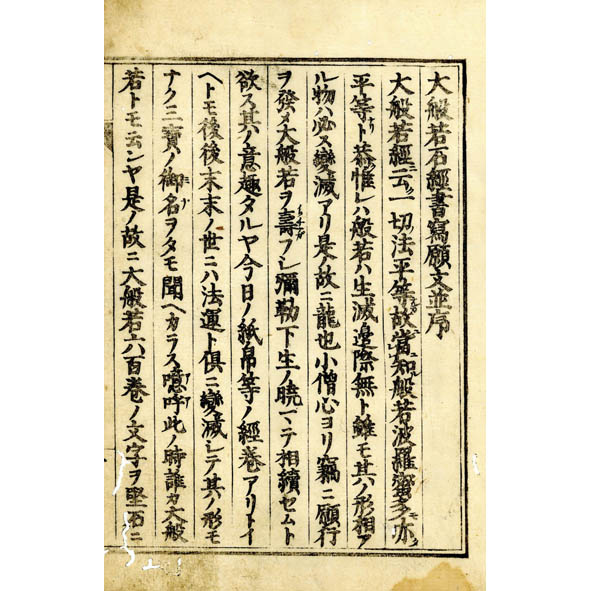 大般若石經書寫願文並序
大般若經ニ云一切法平等故ニ當知ル般若波羅蜜多モ亦
平等ナリト恭惟レハ般若ハ生滅邊際無ト雖モ其ノ形相ア
ル物ハ必ス變滅アリ是ノ故ニ龍也小僧心ヨリ竊ニ願行
ヲ發メ大般若ヲ壽フシ彌勒下生ノ曉マテ相續セムト
欲ス其ノ意趣タルヤ今日ノ紙帛等ノ經卷アリトイ
ヘトモ後後末末ノ世ニハ法運ト俱ニ變滅シテ其ノ形モ
ナク三寶ノ御名ヲタモ聞ヘカラス噫呼此ノ時誰カ大般
若トモ云ンヤ是ノ故ニ大般若六百卷ノ文字ヲ堅石ニ